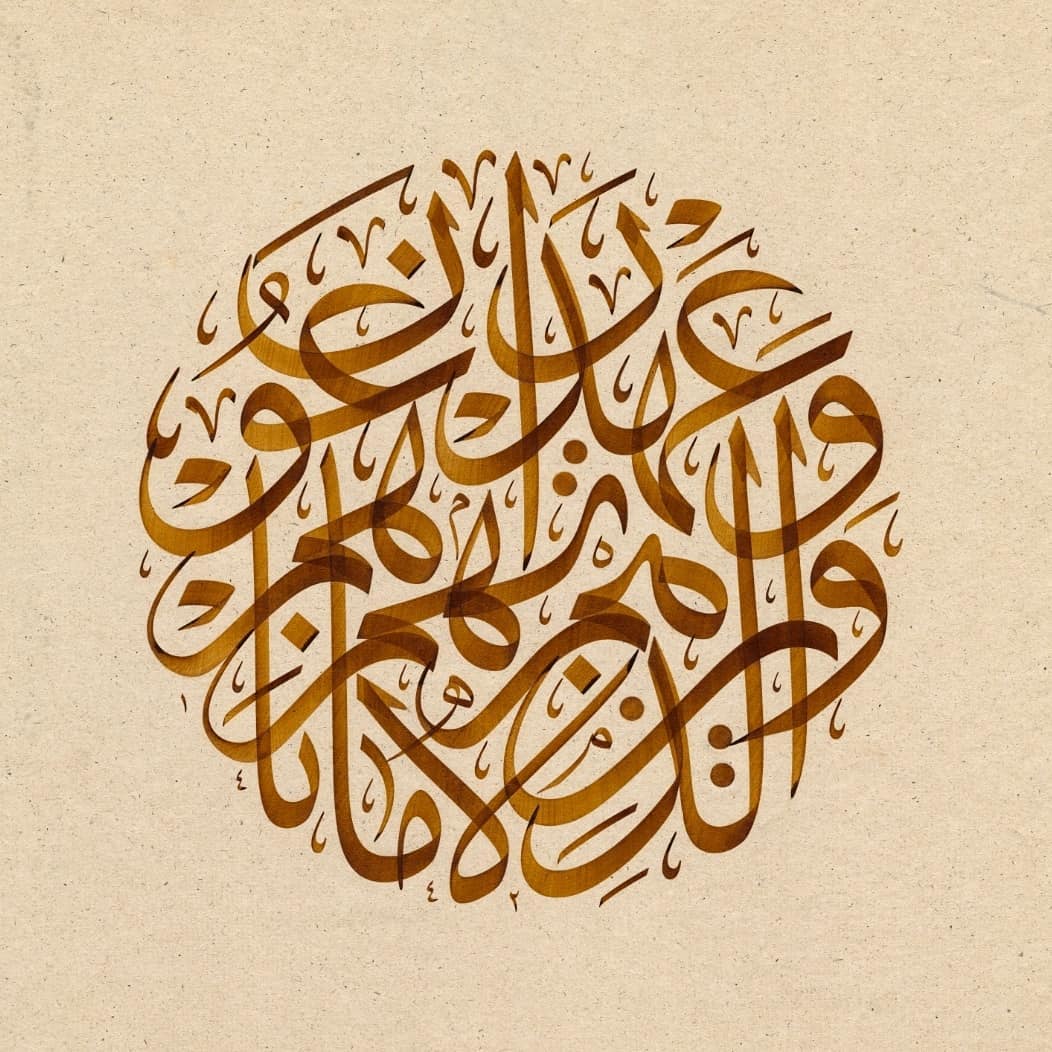 وَالَّذِينَ هُمْ لِأَمَانَاتِهِمْ وَعَهْدِهِمْ رَاعُونَ
١٤٤٢